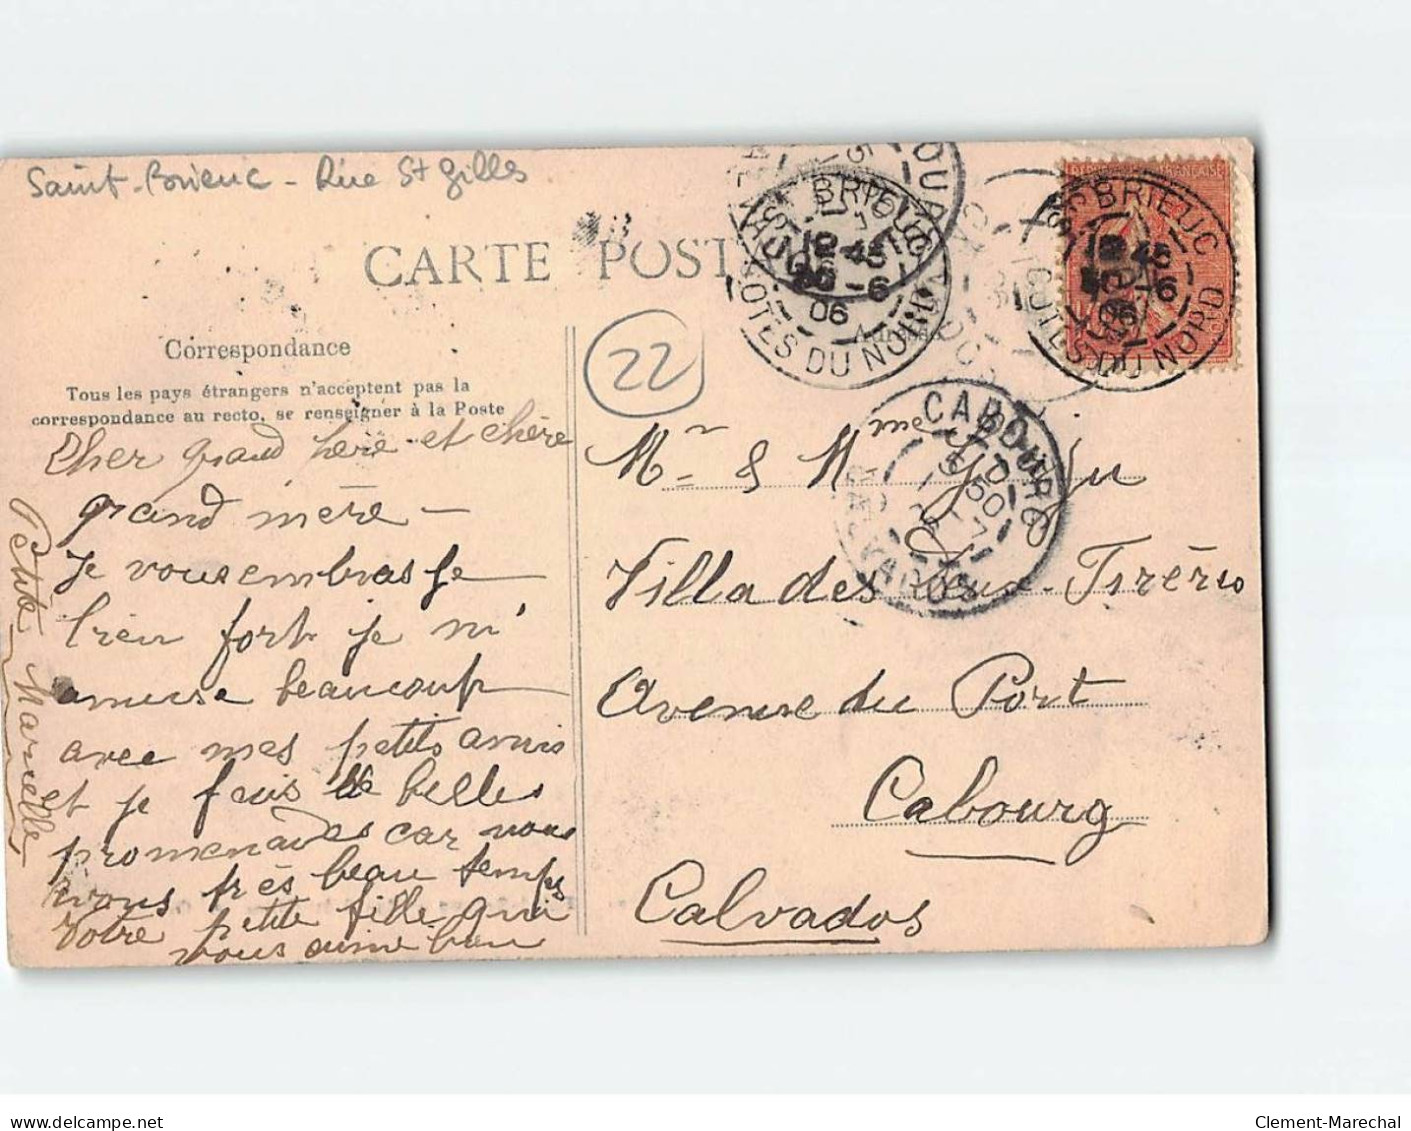 Saint-Brieuc - Rue St Gilles
CARTE POST
Correspondance
Tous les pays étrangers n'acceptent pas la
correspondance au recto, se renseigner à la Poste
22
ST BRIEUC
12 45
-6
06
COTES DU NORD
ST BRIEUC
45
-6
06
COTES DU NORD
CABOURG
50
CALVADOS
Cher grand père et chère
grand mère -
Je vous embrasse
bien fort je m'
amuse beaucoup
avec mes petits amis
et je fais de belles
promenades car nous
avons très beau temps
Votre petite fille qui
vous aime bien
Petite Marcelle
Mr & Mme
Villa des Deux-Frères
Avenue du Port
Cabourg
Calvados
Clement-Marechal